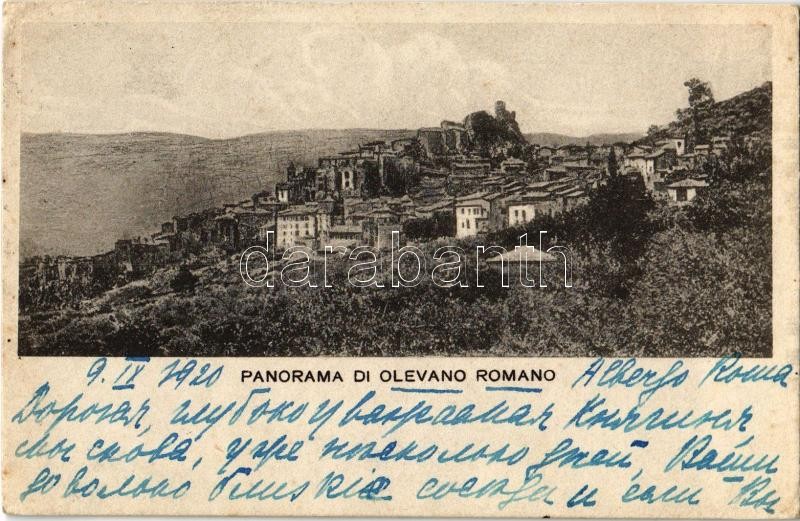 darabanth
9. IX 1920 PANORAMA DI OLEVANO ROMANO Albergo Roma
Дорогая, глубокоуважаемая Княгиня,
мы снова, уже несколько дней, Ваши
довольно близкие соседи и если Вы